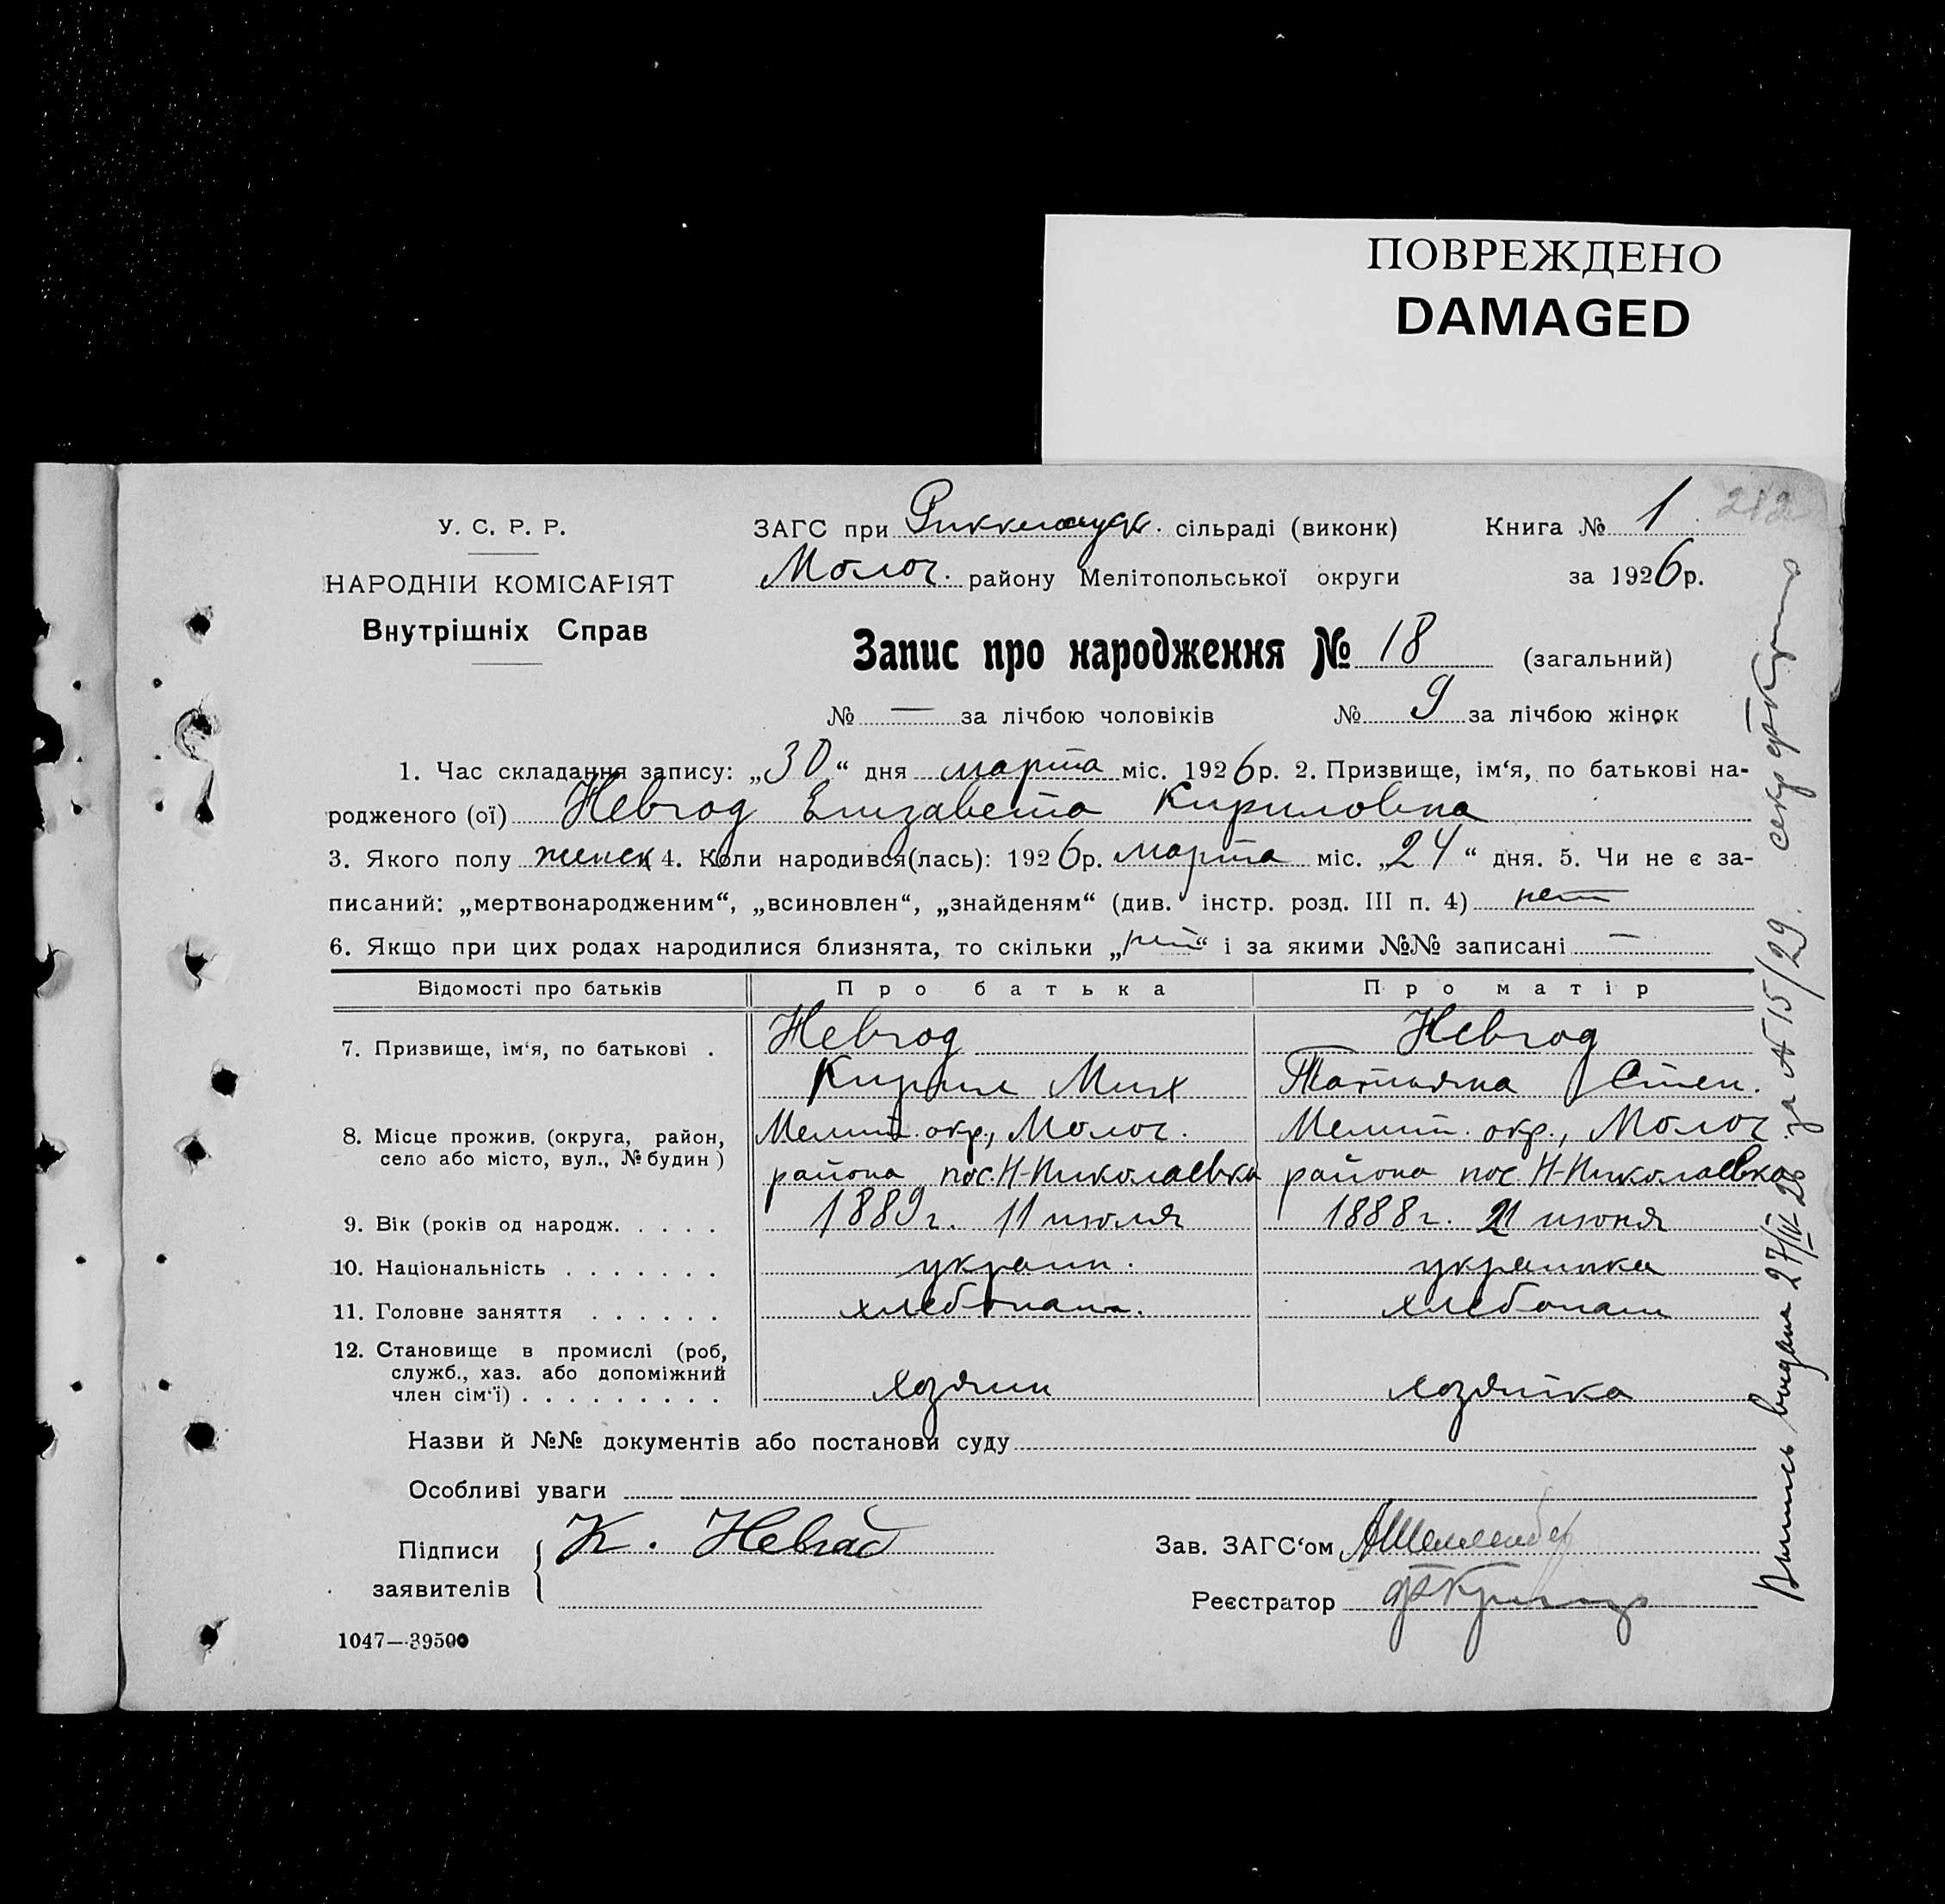 ПОВРЕЖДЕНО
DAMAGED
У. С. Р. Р.
НАРОДНІЙ КОМІСАРІЯТ
Внутрішніх Справ
ЗАГС при сільраді (виконк)
Молоч. району Мелітопольської округи
Книга № 1
212
за 1926 р.
Запис про народження № 18 (загальний)
№ — за лічбою чоловіків № 9 за лічбою жінок
1. Час складання запису: „30“ дня марта міс. 1926 р. 2. Призвище, ім‘я, по батькові на-
родженого (ої) Невгод Елизавета Кириловна
3. Якого полу женск 4. Коли народився(лась): 1926 р. марта міс. „24“ дня. 5. Чи не є за-
писаний: „мертвонародженим“, „всиновлен“, „знайденям“ (див. інстр. розд. III п. 4) нет
6. Якщо при цих родах народилися близнята, то скільки „нет“ і за якими №№ записані —
Відомості про батьків Про батька Про матір
7. Призвище, ім‘я, по батькові . Невгод Невгод
Кирил Мих Татьяна Степ.
8. Місце прожив. (округа, район, Мелит. окр., Молоч. Мелит. окр., Молоч.
село або місто, вул., № будин) района пос. Н-Николаевка района пос. Н-Николаевка
9. Вік (років од народж. . . . . 1889 г. 11 июля 1888 г. 21 июня
10. Національність . . . . . . . украин. украинка
11. Головне заняття . . . . . . хлебопаш. хлебопаш
12. Становище в промислі (роб,
служб., хаз. або допоміжний
член сім‘ї) . . . . . . . . . хозяин хозяйка
Назви й №№ документів або постанови суду
Особливі уваги
Підписи
заявителів
К. Невгод
Зав. ЗАГС‘ом
Реєстратор
1047—39500
Выпись выдана 27/IV-26 за № 15/29. секр